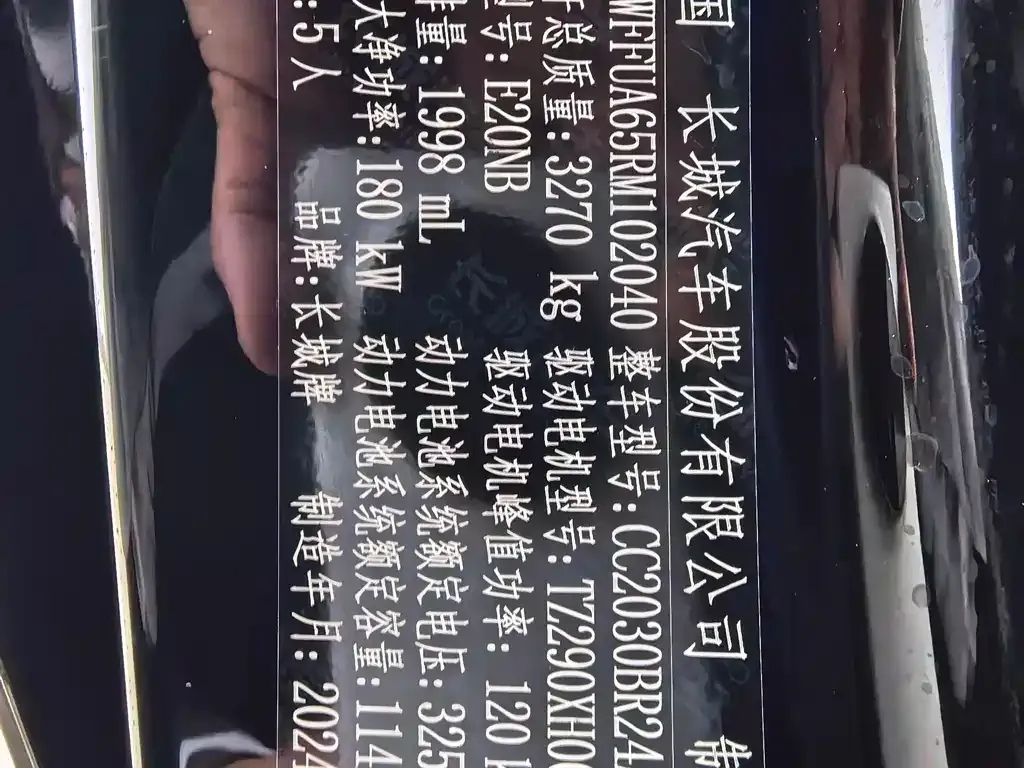 国 长城汽车股份有限公司
WFFUA65RM102040 整车型号:CC2030BR24
总质量:3270 kg 驱动电机型号:TZ290XH0
型号:E20NB 驱动电机峰值功率: 120
排量:1998 mL 动力电池系统额定电压:325
大净功率:180 kW 动力电池系统额定容量:114
:5人 品牌:长城牌 制造年月:2024